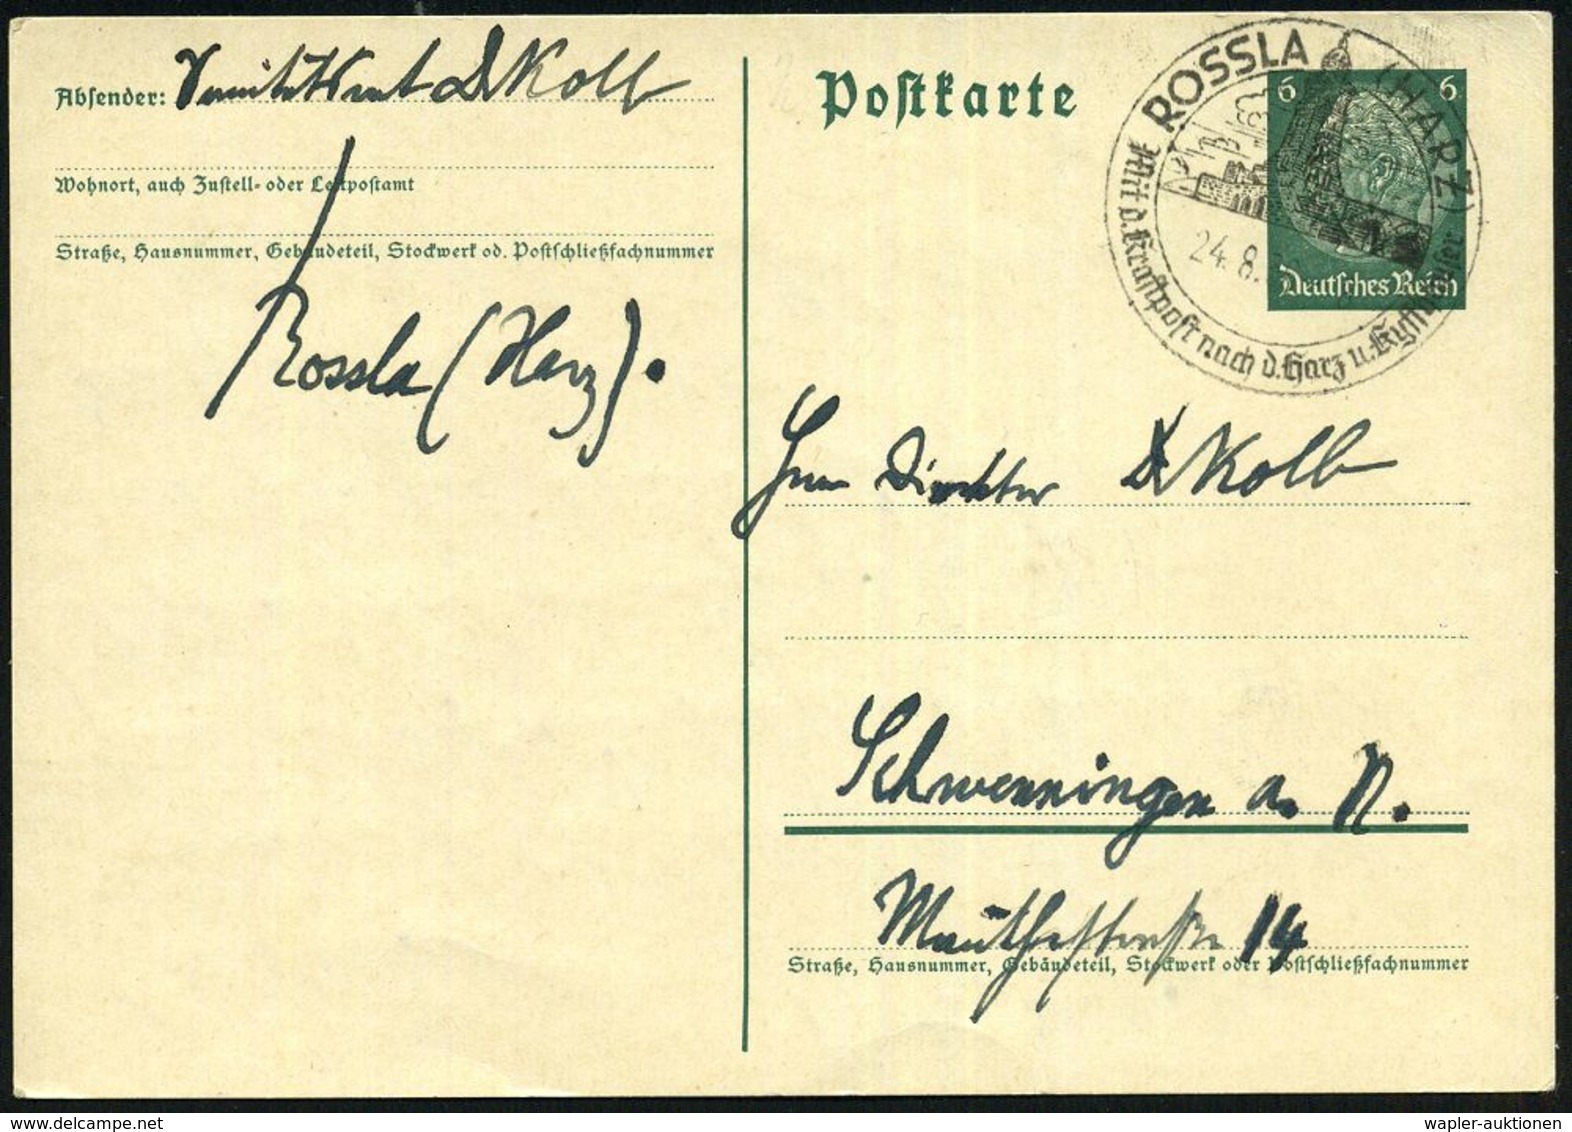 Absender: Sanitätsrat Dr Kolb
Wohnort, auch Zustell- oder Leitpostamt
Straße, Hausnummer, Gebäudeteil, Stockwerk od. Postschließfachnummer
Rossla (Harz).
Postkarte
ROSSLA (HARZ)
Mit d. Kraftpost nach d. Harz u. Kyffhäuser
24.8.
6 6
Deutsches Reich
Herrn Direktor Dr Kolb
Schwenningen a. N.
Mauthestraße 14
Straße, Hausnummer, Gebäudeteil, Stockwerk oder Postschließfachnummer
wapler-auktionen